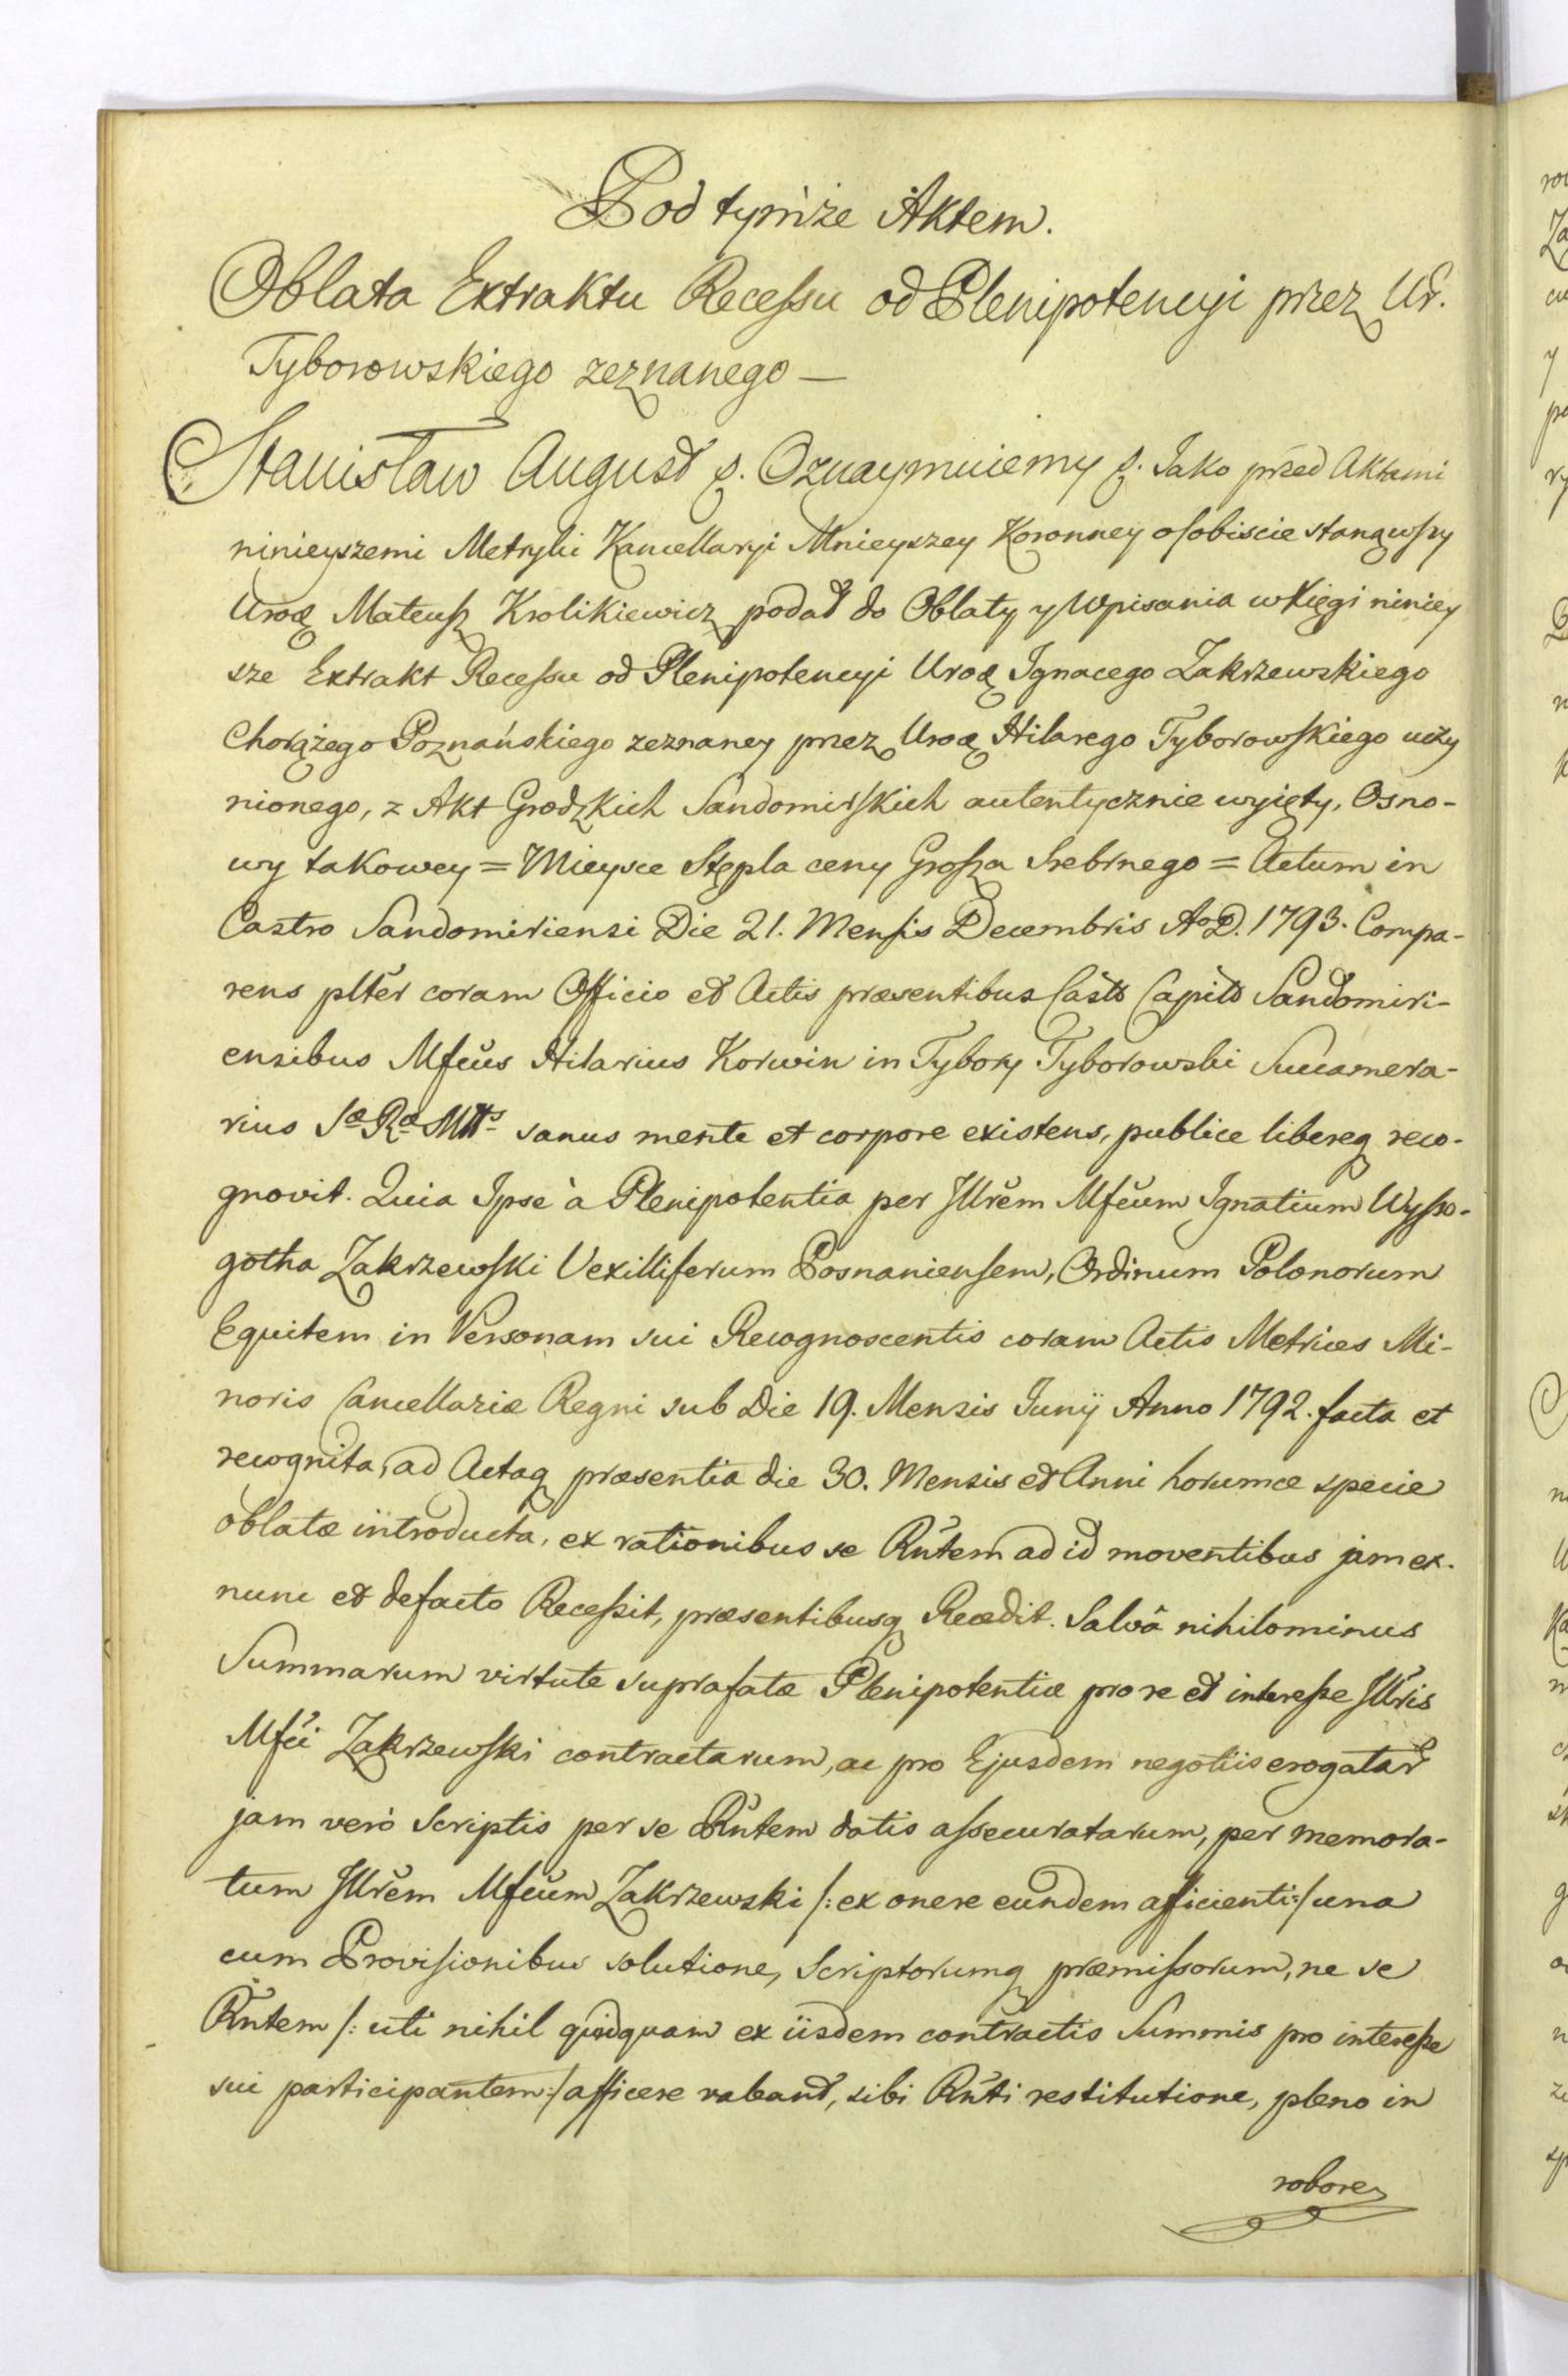 Pod tymże Aktem.
Oblata Extraktu Recessu od Plenipotencyi przez Ur.
Tyborowskiego zeznanego —
Stanisław August &. Oznaymuiemy &. Jako przed Aktami
ninieyszemi Metryki Kancellaryi Mnieyszey Koronney osobiscie stanąwszy
Urod Mateusz Krolikiewicz podał do Oblaty y Wpisania w Xięgi niniey
sze Extrakt Recessu od Plenipotencyi Urod Ignacego Zakrzewskiego
Chorążego Poznańskiego zeznaney przez Urod Hilarego Tyborowskiego uczy
nionego, z Akt Grodzkich Sandomirskich autentycznie wyięty, Osno-
wy takowey = Mieysce Stępla ceny Grosza Srebrnego = Actum in
Castro Sandomiriensi Die 21. Mensis Decembris Ao D. 1793. Compa-
rens plter coram Officio et Actis præsentibus Castr Capit Sandomiri-
ensibus Mfcus Hilarius Korwin in Tybory Tyborowski Succamera-
rius Sæ Ræ Mttis sanus mente et corpore existens, publice libereq reco-
gnovit. Quia Ipse à Plenipotentia per Illrem Mfcum Ignatium Wysso-
gotha Zakrzewski Vexilliferum Posnaniensem, Ordinum Polonorum
Equitem in Personam sui Recognoscentis coram Actis Metrices Mi-
noris Cancellariæ Regni sub Die 19. Mensis Junij Anno 1792. facta et
recognita, ad Actaq præsentia die 30. Mensis et Anni horumce specie
oblatæ introducta, ex rationibus se Rntem ad id moventibus jam ex-
nunc et defacto Recessit, præsentibusq Recedit. Salvâ nihilominus
Summarum virtute suprafatæ Plenipotentiæ pro re et interesse Illris
Mfci Zakrzewski contractarum, ac pro Ejusdem negotiis erogatar
jam verò Scriptis per se Rntem datis assecuratarum, per memora-
tum Illrem Mfcum Zakrzewski /: ex onere eundem afficienti :/ una
cum Provisionibus solutione, Scriptorumq præmissorum, ne se
Rntem /: uti nihil quidquam ex iisdem contractis Summis pro interesse
sui participantem :/ afficere valeant, sibi Rnti restitutione, pleno in
robore